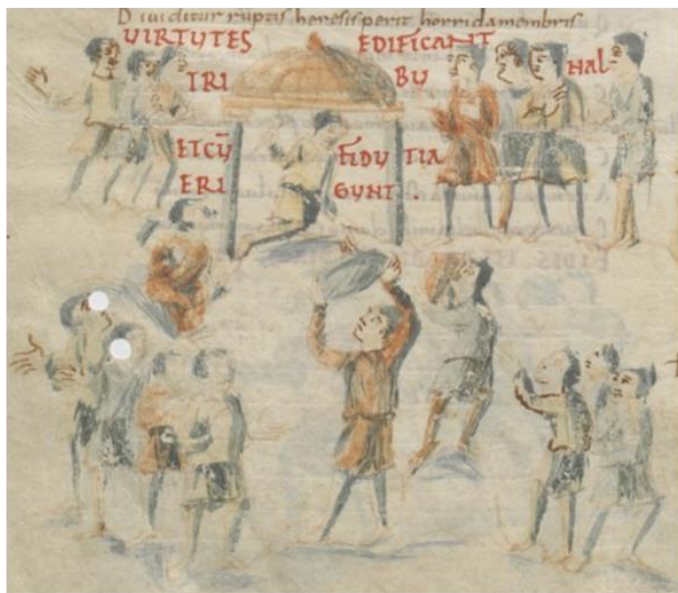 Diuiditur ruptis heresis perit horrida membris
UIRTUTES EDIFICANT
TRI BU NAL
ETCŪ FIDU TIA
ERI GUNT.